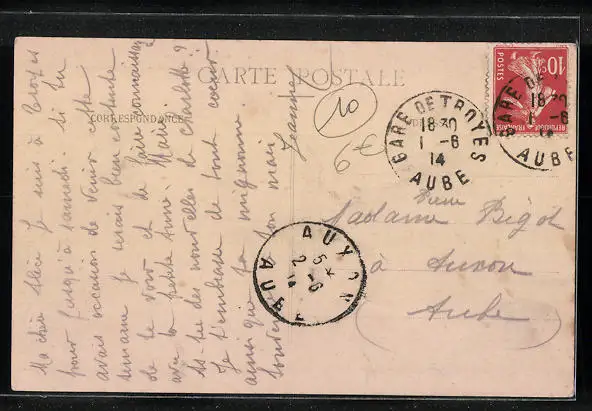 CARTE POSTALE
CORRESPONDANCE
Ma chère Alice Je suis à Troyes
pour jusqu'à samedi. Si tu
avais occasion de venir cette
semaine Je serais bien contente
de te voir et de faire connaissance
avec ta petite Marie
As-tu des nouvelles de Charlotte ?
Je t'embrasse de tout coeur
ainsi que ta mignonne
ton mari
Jeanne
10
6€
GARE DE TROYES
18 30
1 - 6
14
AUBE
POSTES
10c
REPUBLIQUE FRANÇAISE
GARE DE
18 30
1 - 6
14
AUBE
Madame Bégot
à Auxon
Aube
AUXON
5 *
2 - 6
14
AUBE